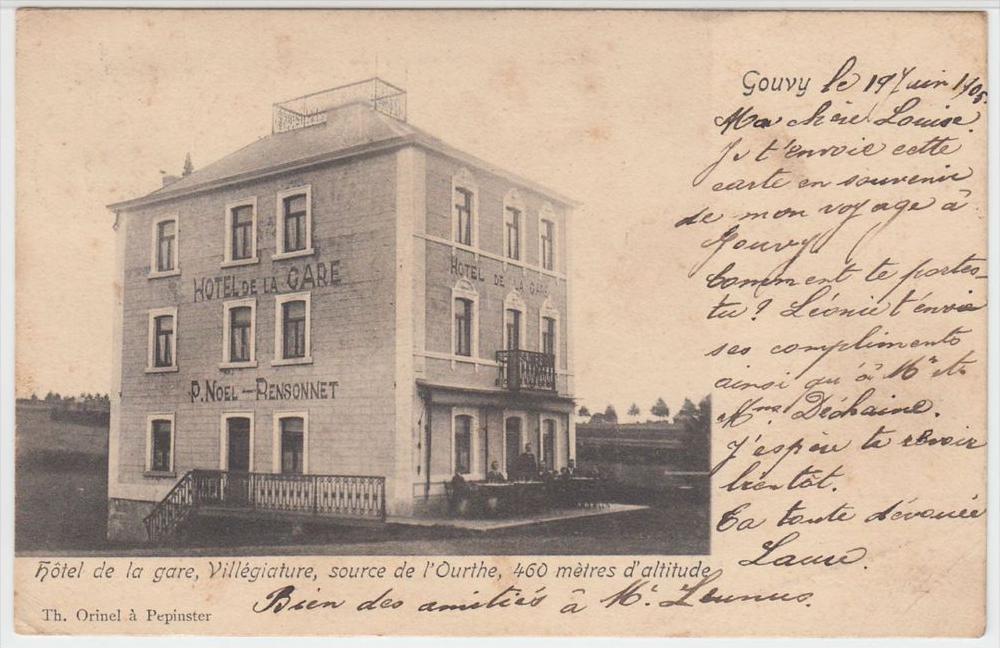 Gouvy le 19 Juin 1905
Ma chère Louise.
Je t'envoie cette
carte en souvenir
de mon voyage à
Gouvy
Comment te portes-
tu? Léonie t'envoie
ses compliments
ainsi qu'à Mr et
Mme Déchaine.
J'espère te revoir
bientôt.
Ta toute dévouée
Laure.
HOTEL DE LA GARE
HOTEL DE LA GARE
P. NOEL - RENSONNET
Hôtel de la gare, Villégiature, source de l'Ourthe, 460 mètres d'altitude
Bien des amitiés à Mr Leunus.
Th. Orinel à Pepinster